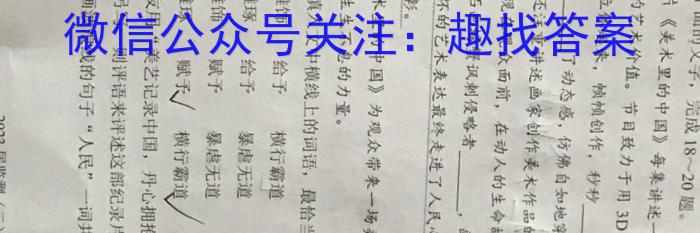 微信公众号关注：趣找答案
的文字，完成18~20题。
片《美术里的中国》每集讲述一
的艺术价值。节目致力于用3D
美，帧帧创作，秒秒
了动态感，仿佛自如地穿
还注重讲述画家创作美术作品的
现在观众面前，在动人的生命故
讽刺侵略者
怀的艺术表达最终走进了人民心
彩。
中国》为观众带来一场
的力量。
文中横线上的词语，最恰
给予 横行霸道
给予 暴虐无道
赋予 暴虐无道
赋予 横行霸道
美艺记录中国，丹心拥抱
评语来评述这部纪录片
的句子“人民”一词共
2023届监测（三）